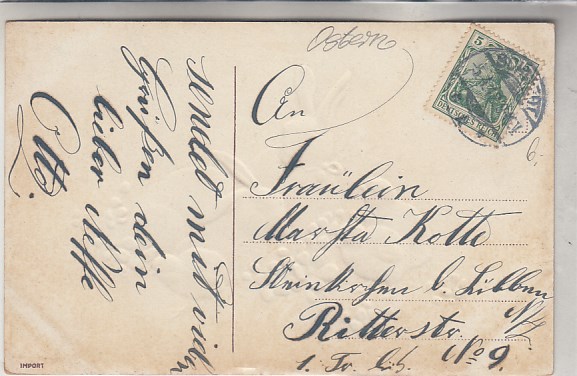 sendet mit vielen
Grüßen dein
lieber Neffe
Otto.
Ostern
An
Fräulein
Martha Kotte
Steinkirchen b. Lübben
N/L.
Ritterstr.
No 9.
1. Tr.
5
DEUTSCHES REICH
6.-
IMPORT